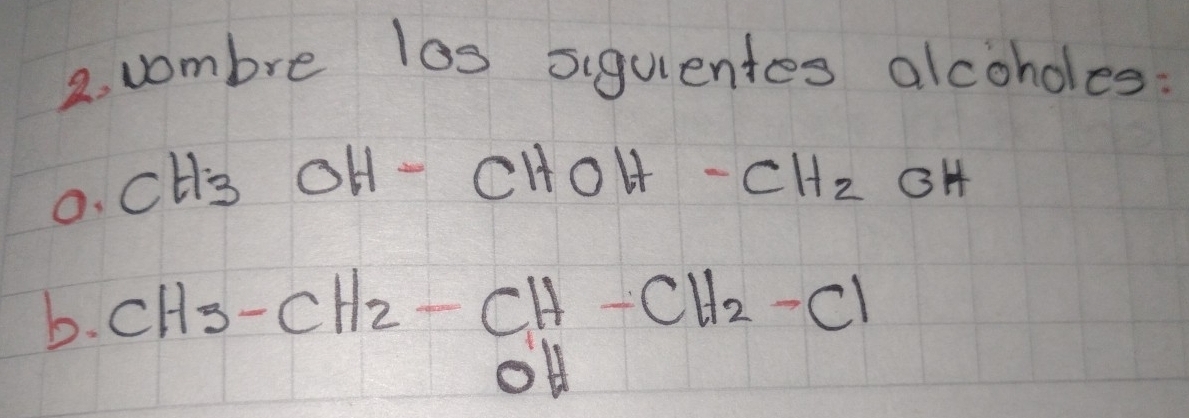 2. Nombre los siguientes alcoholes:
a. CH3 OH - CHOH - CH2 OH
b. CH3 - CH2 - CH - CH2 - Cl
OH